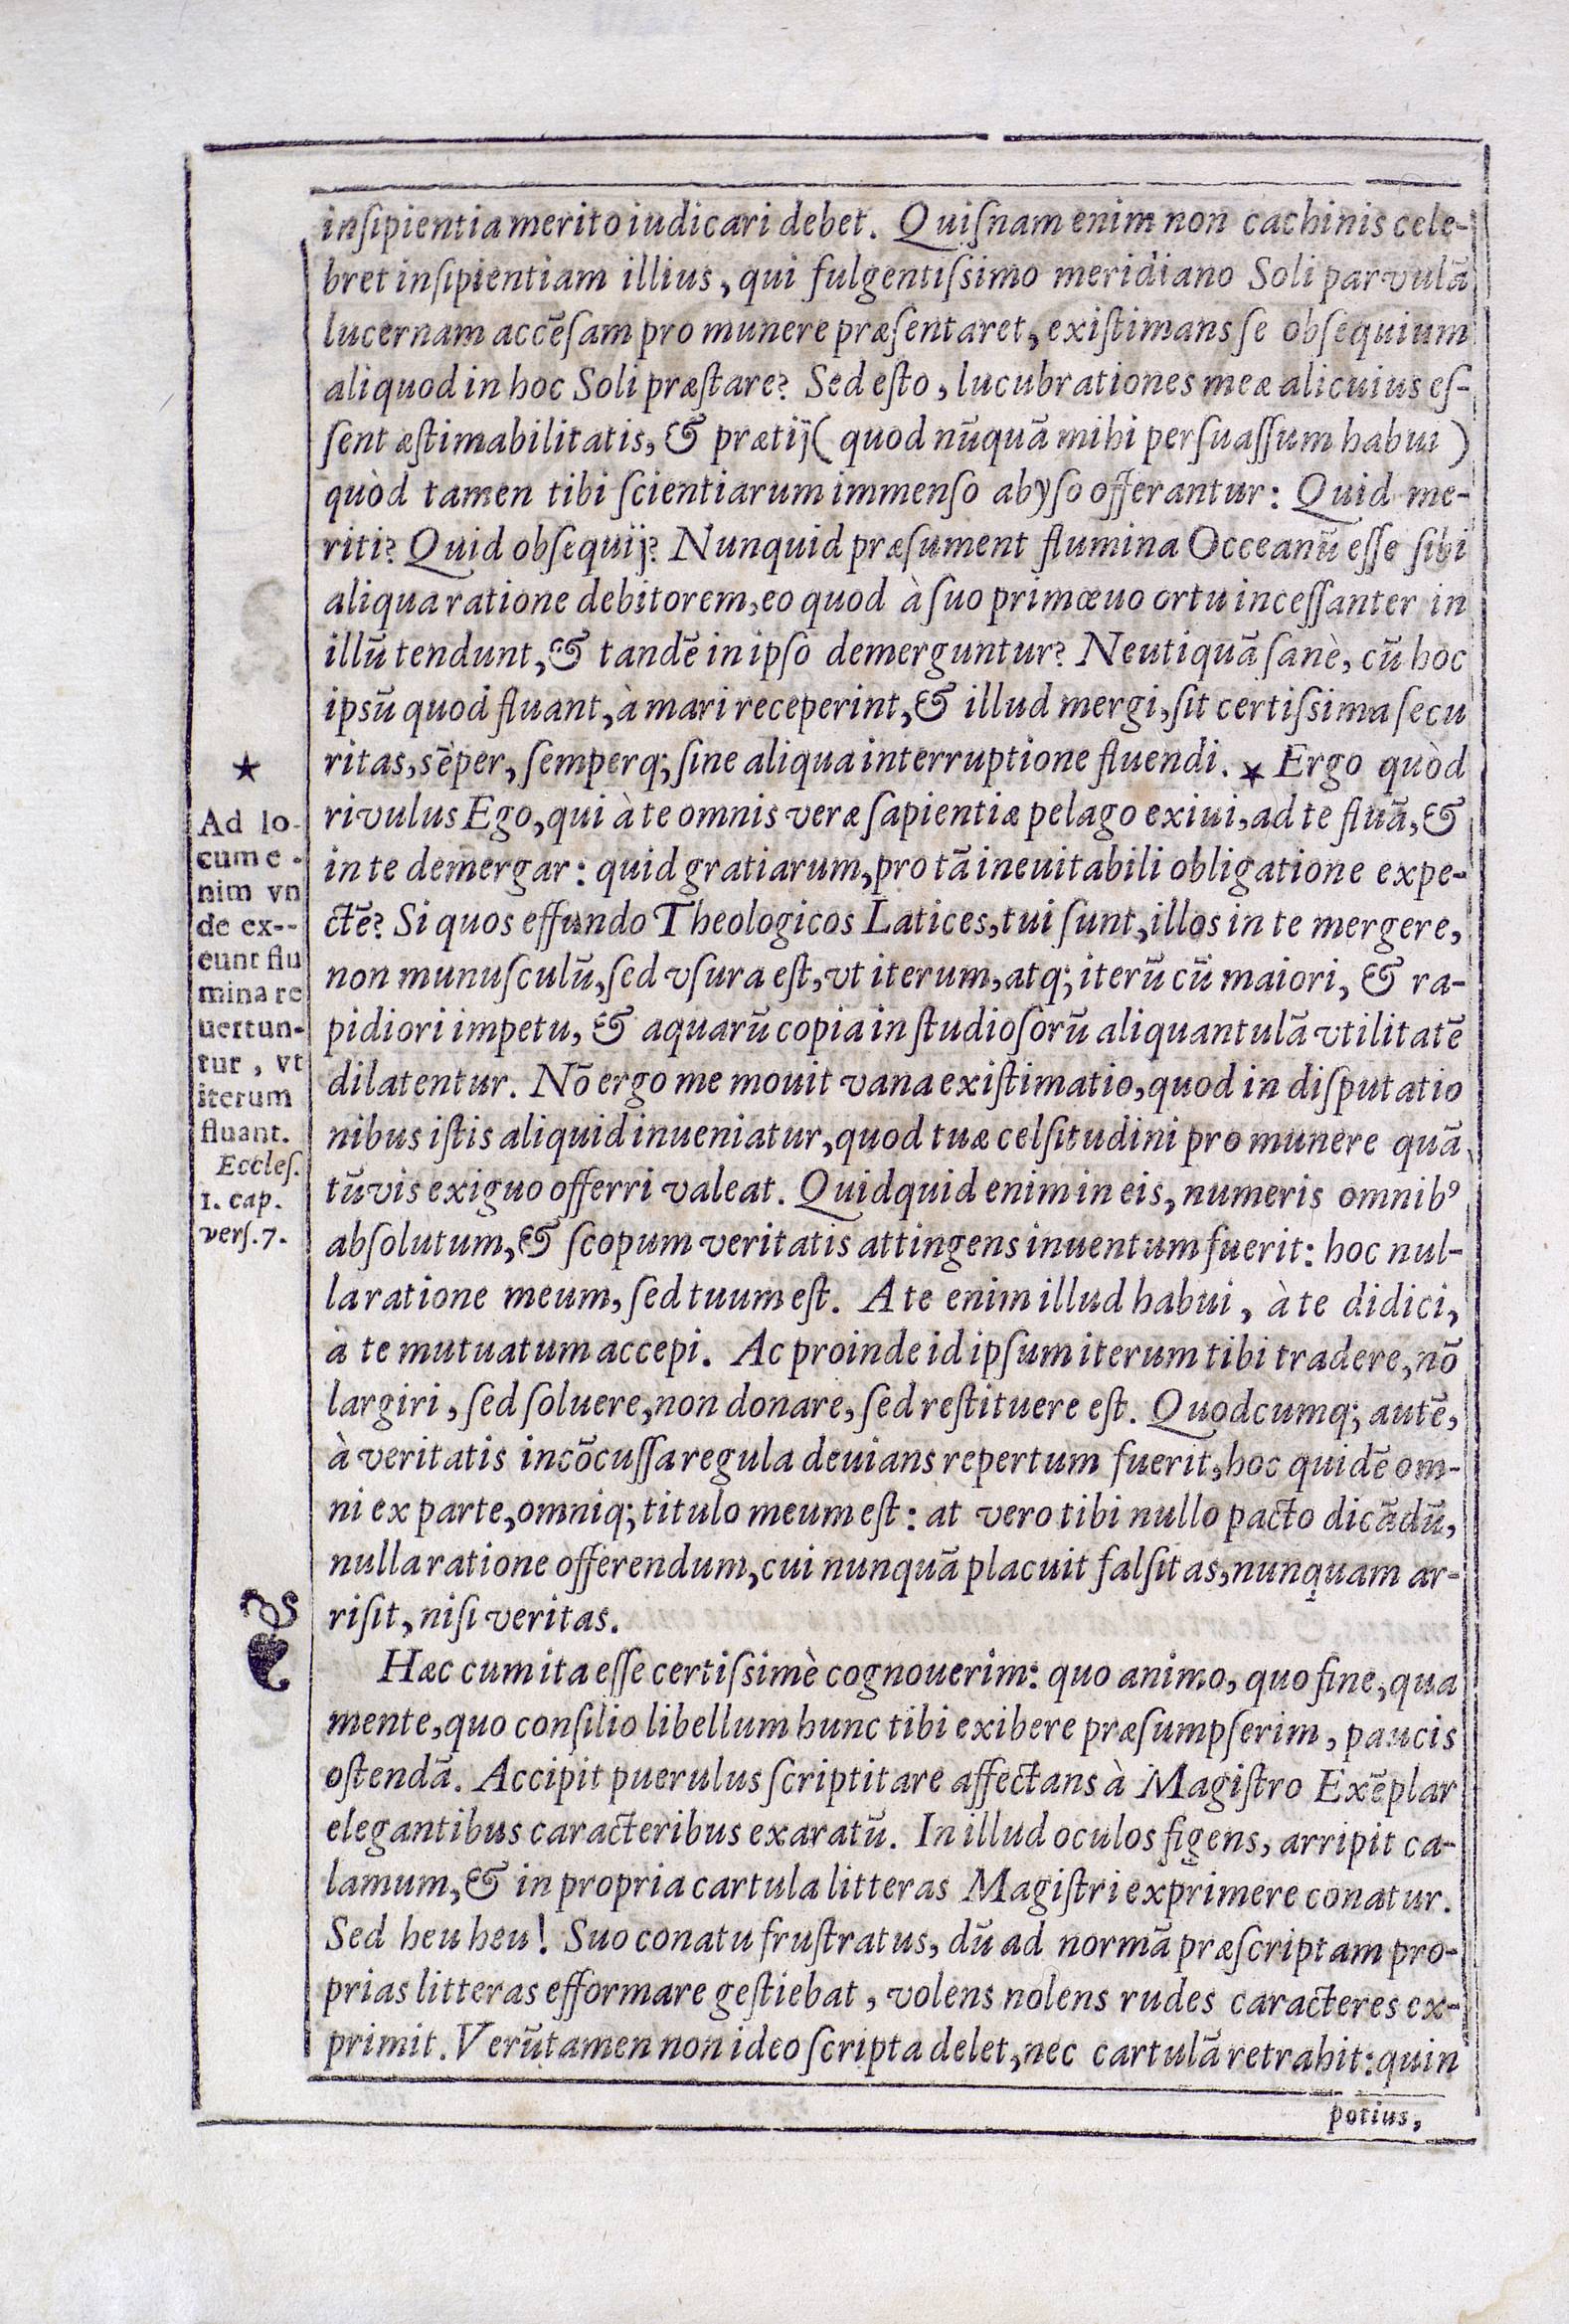 insipientia merito iudicari debet. Quisnam enim non cachinis cele-
bret insipientiam illius, qui fulgentissimo meridiano Soli parvulã
lucernam accẽsam pro munere præsentaret, existimans se obsequium
aliquod in hoc Soli præstare? Sed esto, lucubrationes meæ alicuius es-
sent æstimabilitatis, & prætij ( quod nũquã mihi persuassum habui )
quòd tamen tibi scientiarum immenso abyso offerantur: Quid me-
riti? Quid obsequij? Nunquid præsument flumina Occeanũ esse sibi
aliqua ratione debitorem, eo quod à suo primœuo ortu incessanter in
illũ tendunt, & tandẽ in ipso demerguntur? Neutiquã sanè, cũ hoc
ipsũ quod fluant, à mari receperint, & illud mergi, sit certissima secu
ritas, sẽper, semperq; sine aliqua interruptione fluendi. ★ Ergo quòd
rivulus Ego, qui à te omnis veræ sapientiæ pelago exiui, ad te fluã, &
in te demergar: quid gratiarum, pro tã ineuitabili obligatione expe-
ctẽ? Si quos effundo Theologicos Latices, tui sunt, illos in te mergere,
non munusculũ, sed vsura est, vt iterum, atq; iterũ cũ maiori, & ra-
pidiori impetu, & aquarũ copia in studiosorũ aliquantulã vtilitatẽ
dilatentur. Nõ ergo me mouit vana existimatio, quod in disputatio
nibus istis aliquid inueniatur, quod tuæ celsitudini pro munere quã
tũvis exiguo offerri valeat. Quidquid enim in eis, numeris omnibꝰ
absolutum, & scopum veritatis attingens inuentum fuerit: hoc nul-
la ratione meum, sed tuum est. A te enim illud habui, à te didici,
à te mutuatum accepi. Ac proinde id ipsum iterum tibi tradere, nõ
largiri, sed soluere, non donare, sed restituere est. Quodcumq; autẽ,
à veritatis incõcussa regula deuians repertum fuerit, hoc quidẽ om-
ni ex parte, omniq; titulo meum est: at vero tibi nullo pacto dicãdũ,
nulla ratione offerendum, cui nunquã placuit falsitas, nunquam ar-
risit, nisi veritas.
Hæc cum ita esse certissimè cognouerim: quo animo, quo fine, qua
mente, quo consilio libellum hunc tibi exibere præsumpserim, paucis
ostendã. Accipit puerulus scriptitare affectans à Magistro Exẽplar
elegantibus caracteribus exaratũ. In illud oculos figens, arripit ca-
lamum, & in propria cartula litteras Magistri exprimere conatur.
Sed heu heu! Suo conatu frustratus, dũ ad normã præscriptam pro-
prias litteras efformare gestiebat, volens nolens rudes caracteres ex-
primit. Verũtamen non ideo scripta delet, nec cartulã retrahit: quin
potius,
★
Ad lo-
cum e-
nim vn
de ex--
eunt flu
mina re
uertun-
tur, vt
iterum
fluant.
Eccles.
1. cap.
vers. 7.